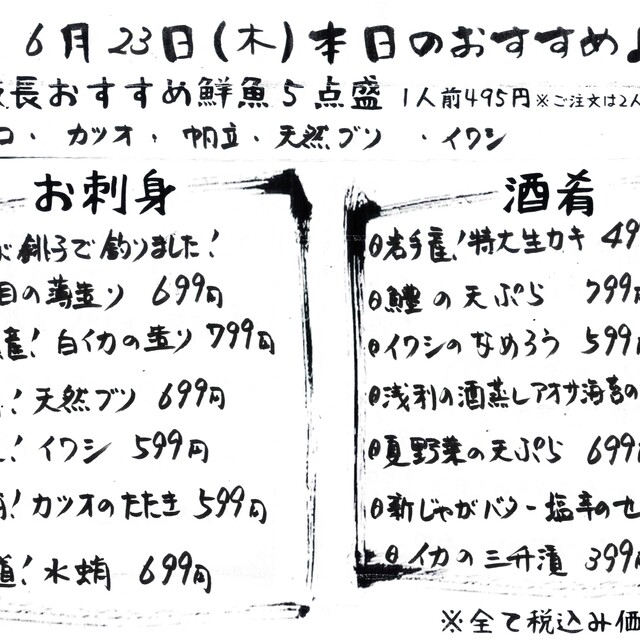 6月23日(木)本日のおすすめ
長おすすめ鮮魚5点盛 1人前495円※ご注文は2人
コ・カツオ・帆立・天然ブリ・イワシ
お刺身
銚子で釣りました!
目の薄造り 699円
産!白イカの造り 799円
!天然ブリ 699円
!イワシ 599円
!カツオのたたき 599円
道!水蛸 699円
酒肴
岩手産!特大生カキ 49
鱧の天ぷら 799円
イワシのなめろう 599
浅利の酒蒸しアオサ海苔の
夏野菜の天ぷら 699
新じゃがバター塩辛のせ
イカの三升漬 399円
※全て税込み価